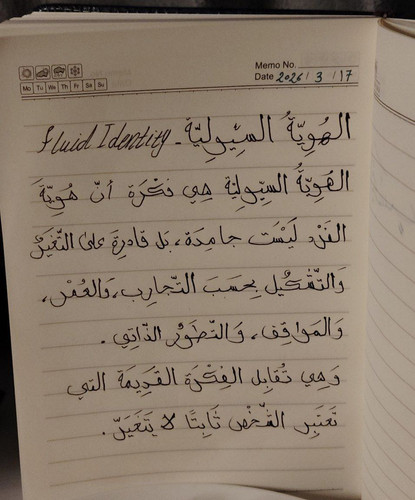 Memo No.
Date 2026 / 3 / 17
Mo Tu We Th Fr Sa Su
الهُوِيّةُ السيُّولِيّة - Fluid Identity
الهَوِيّةُ السيُّولِيّة هِي فكْرَة أنّ هُوِيّةَ
الفَرْد لَيْسَت جامِدَة، بَل قادِرةَ على التّغيُّر
وَالتّشْكيل بِحسَبَ التّجارِب، وَالعُمْر،
وَالمَواقِف، وَالتّطوُّر الذّاتِي.
وَهِي تُقابِل الفِكْرَة القَدِيمَة التي
تَعتَبِر الشّخْص ثَابِتًا لا يَتَغَيّر.